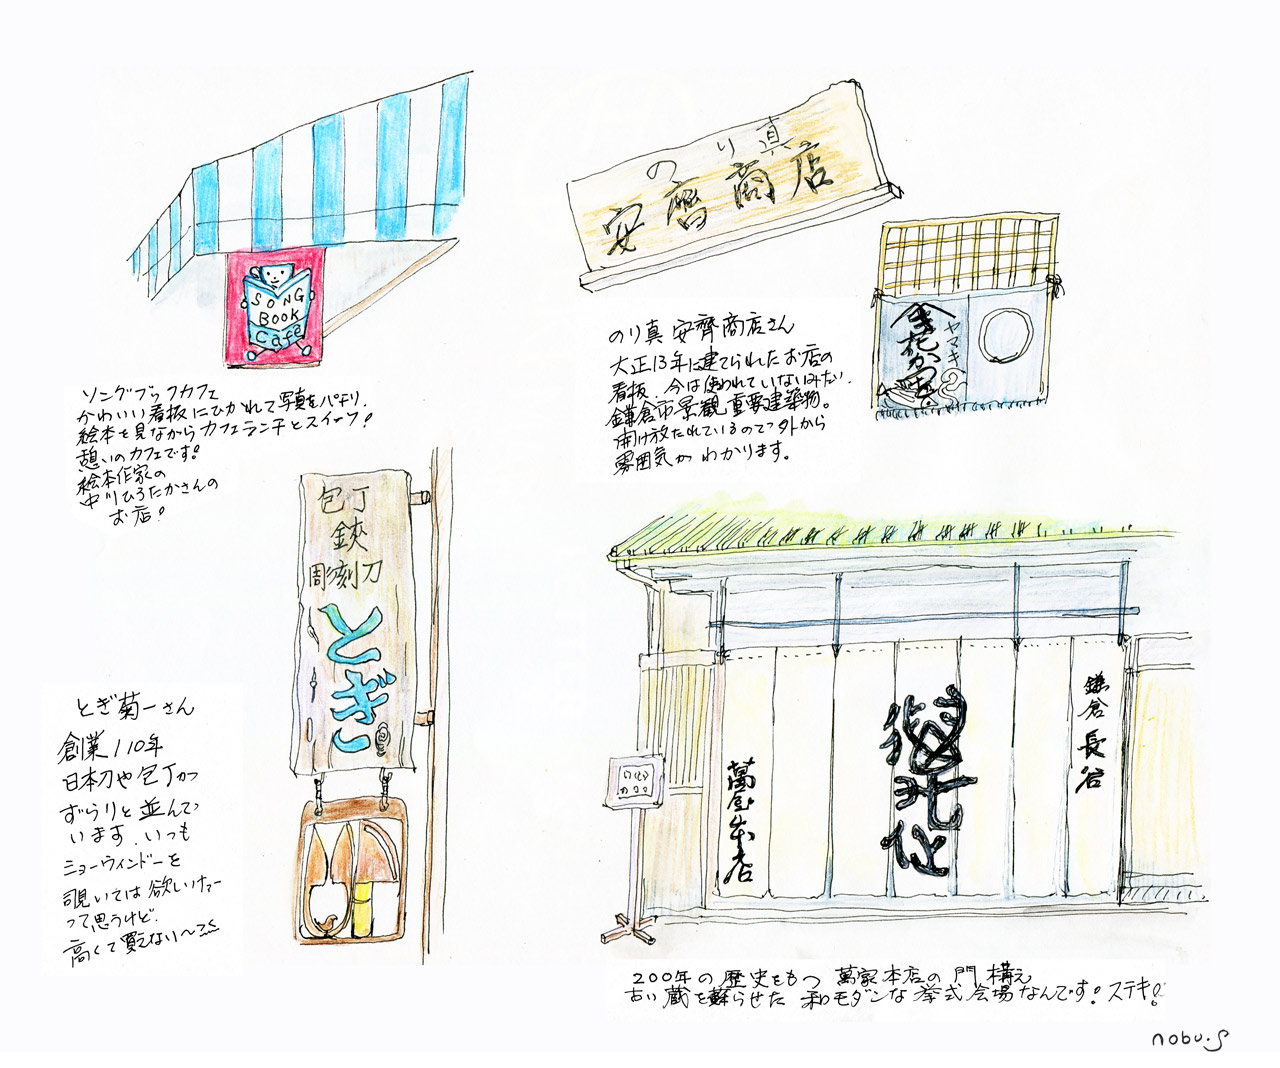 SONG
BOOK
Cafe
ソングブックカフェ
かわいい看板にひかれて写真をパチリ.
絵本を見ながらカフェランチとスイーツ!
憩いのカフェです!
絵本作家の
中川ひろたかさんの
お店!
のり真
安齊商店
ヤマキ
花かつを
のり真 安齊商店さん
大正13年に建てられたお店の
看板.今は使われていないみたい.
鎌倉市景観重要建築物。
開け放たれているので外から
雰囲気がわかります。
包丁
鋏
彫刻刀
とぎ
とぎ菊一さん
創業110年
日本刀や包丁が
ずらりと並んで
います.いつも
ショーウィンドーを
覗いては欲しいけー
って思うけど.
高くて買えない〜
鎌倉長谷
萬屋本店
200年の歴史をもつ 萬家本店の門構え
古い蔵を蘇らせた 和モダンな挙式会場なんです!ステキ!
nobu.S